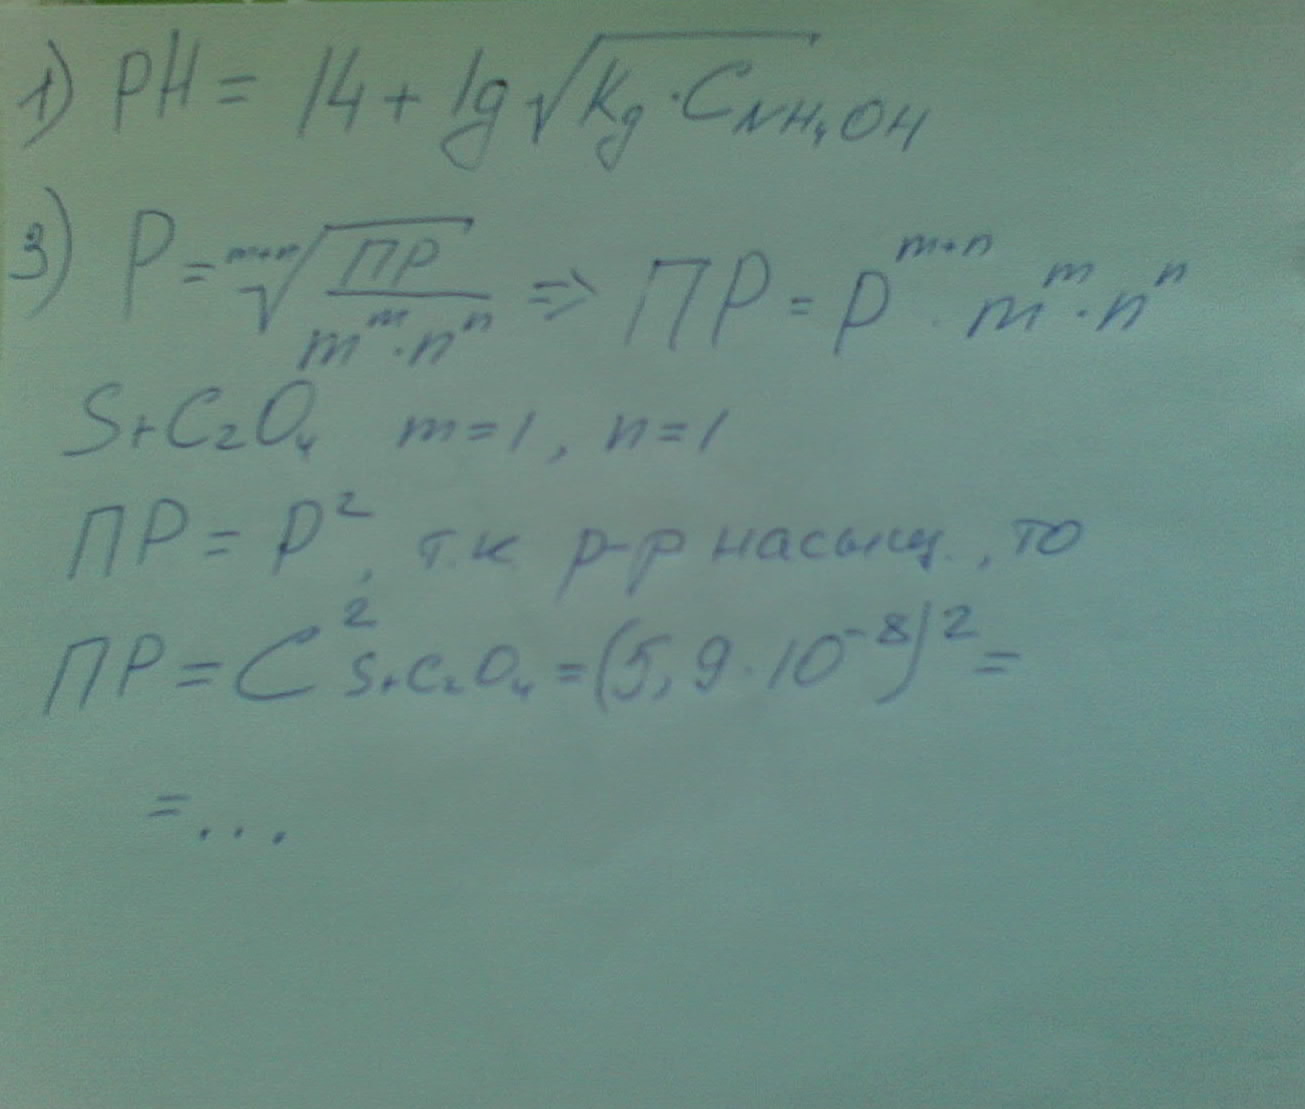 1) pH = 14 + lg √(Kд · C_NH₄OH)
3) P = ᵐ⁺ⁿ√(ПР / mᵐ · nⁿ) => ПР = Pᵐ⁺ⁿ · mᵐ · nⁿ
SrC₂O₄ m = 1, n = 1
ПР = P², т.к р-р насыщ., то
ПР = C²_SrC₂O₄ = (5,9 · 10⁻⁸)² =
= ...